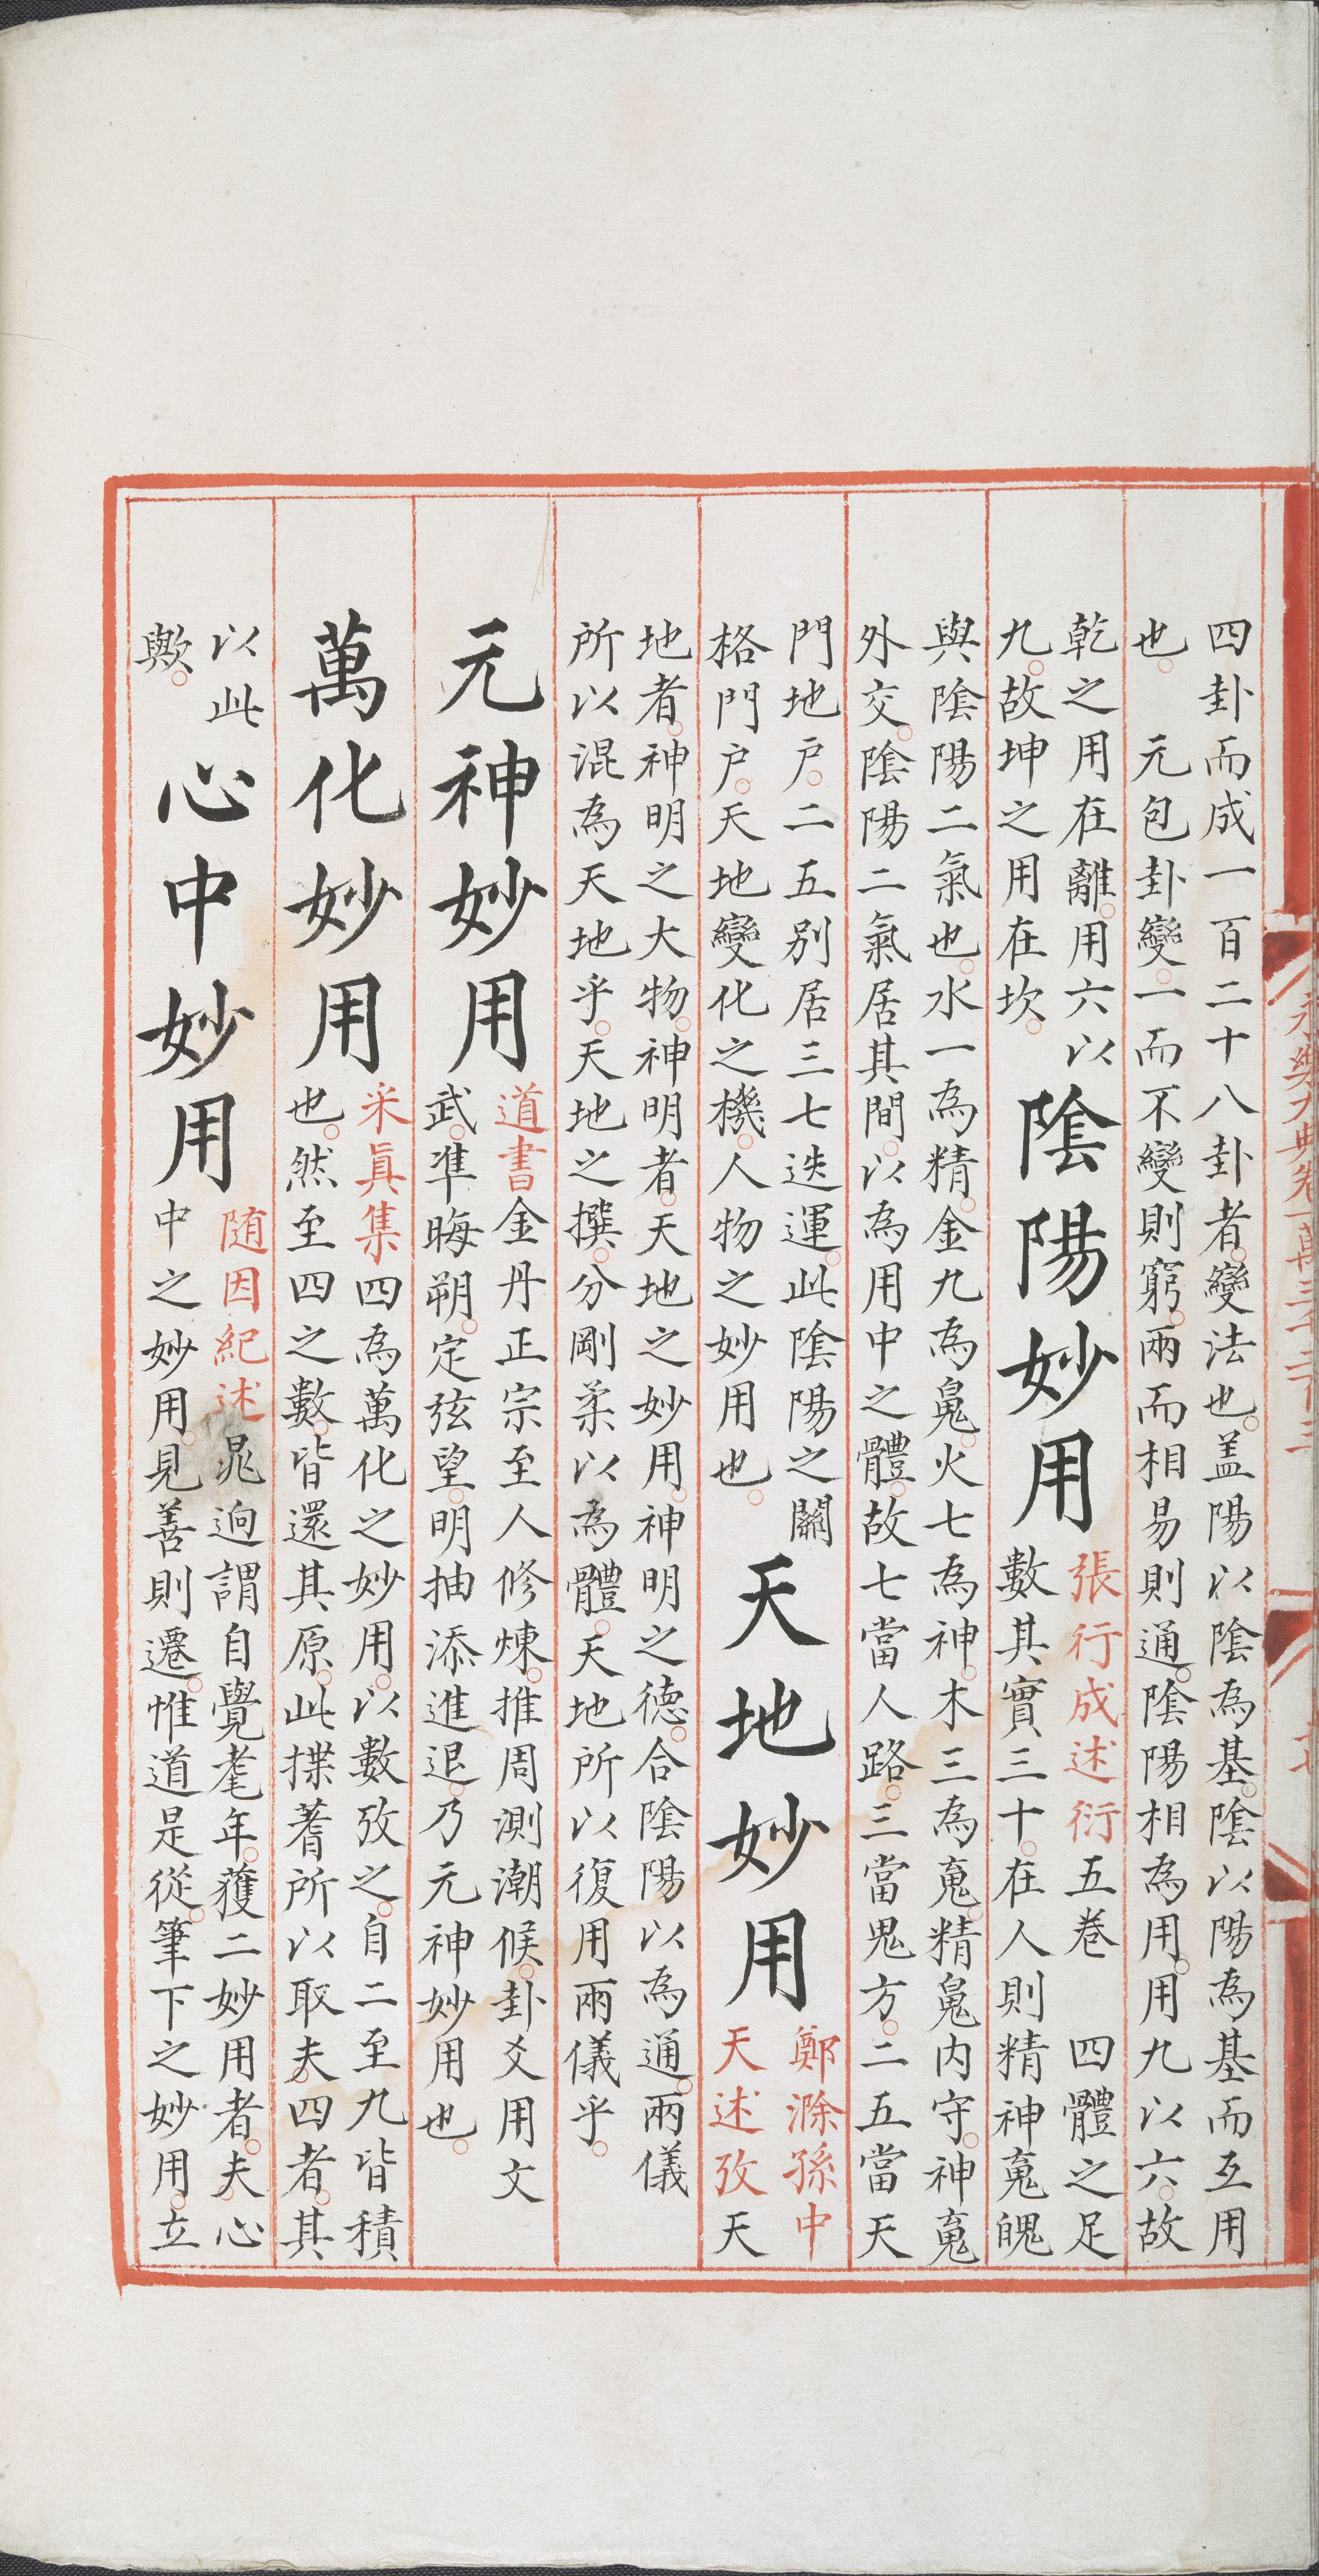 永樂大典卷一萬三千二百三
四卦而成一百二十八卦者變法也盖陽以陰為基陰以陽為基而互用
也 元包卦變一而不變則窮兩而相易則通陰陽相為用用九以六故
乾之用在離用六以
九故坤之用在坎
陰陽妙用
張行成述衍五卷 四體之足
數其實三十在人則精神䰟魄
與陰陽二氣也水一為精金九為鬼火七為神木三為䰟精鬼内守神䰟
外交陰陽二氣居其間以為用中之體故七當人路三當鬼方二五當天
門地戶二五别居三七迭運此陰陽之關
格門户天地變化之機人物之妙用也
天地妙用
鄭滁孫中
天述攷天
地者神明之大物神明者天地之妙用神明之德合陰陽以為通兩儀
所以混為天地乎天地之撰分剛柔以為體天地所以復用兩儀乎
元神妙用
道書金丹正宗至人修煉推周測潮候卦爻用文
武凖晦朔定弦望明抽添進退乃元神妙用也
萬化妙用
采眞集四為萬化之妙用以數攷之自二至九皆積
也然至四之數皆還其原此揲蓍所以取夫四者其
以此
歟
心中妙用
随因紀述晁迥謂自覺耄年獲二妙用者夫心
中之妙用見善則遷惟道是從筆下之妙用立